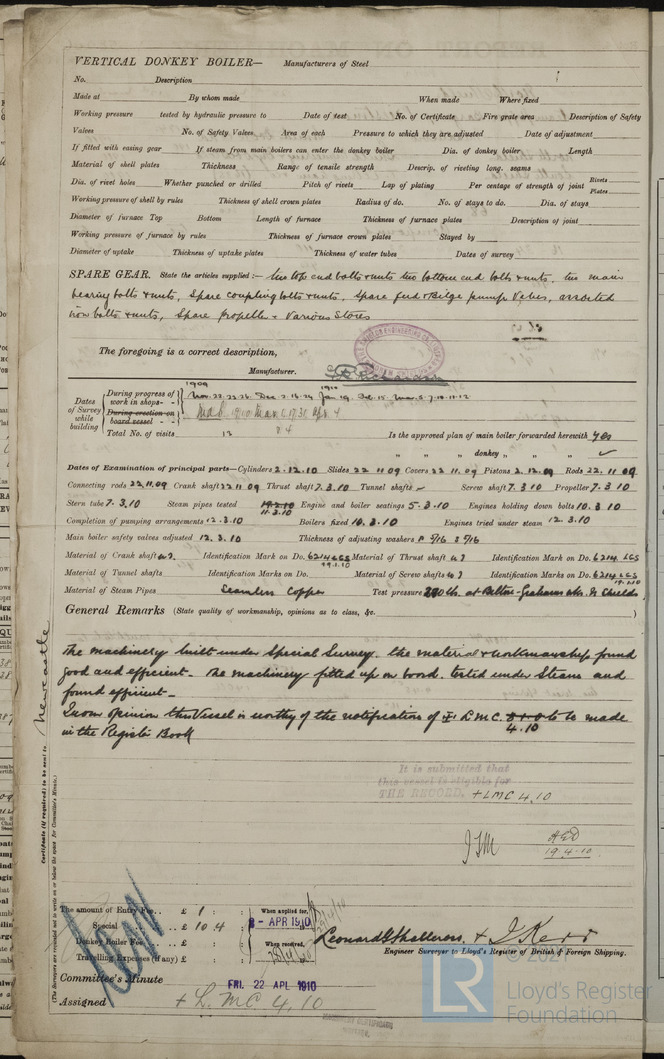 VERTICAL DONKEY BOILER— Manufacturers of Steel
No. Description
Made at By whom made When made Where fixed
Working pressure tested by hydraulic pressure to Date of test No. of Certificate Fire grate area Description of Safety
Valves No. of Safety Valves Area of each Pressure to which they are adjusted Date of adjustment
If fitted with easing gear If steam from main boilers can enter the donkey boiler Dia. of donkey boiler Length
Material of shell plates Thickness Range of tensile strength Descrip. of riveting long. seams
Dia. of rivet holes Whether punched or drilled Pitch of rivets Lap of plating Per centage of strength of joint Rivets Plates
Working pressure of shell by rules Thickness of shell crown plates Radius of do. No. of stays to do. Dia. of stays
Diameter of furnace Top Bottom Length of furnace Thickness of furnace plates Description of joint
Working pressure of furnace by rules Thickness of furnace crown plates Stayed by
Diameter of uptake Thickness of uptake plates Thickness of water tubes Dates of survey
SPARE GEAR. State the articles supplied:— two top end bolts & nuts two bottom end bolts & nuts, two main
bearing bolts & nuts, Spare coupling bolts & nuts, Spare feed & Bilge pump Valves, assorted
iron bolts & nuts, Spare Propeller & Various Stores
The foregoing is a correct description,
Manufacturer.
Dates of Survey while building
During progress of work in shops - - 1909 Nov. 22.23.26. Dec. 2.13.24 1910 Jan. 19. Feb. 15. Mar. 5.7.10.11.12
During erection on board vessel - - -
Total No. of visits 13
Is the approved plan of main boiler forwarded herewith yes
" " " donkey " " " ✓
Dates of Examination of principal parts—Cylinders 2.12.10 Slides 22 11 09 Covers 22 11 09 Pistons 2.12.09 Rods 22.11 09
Connecting rods 22.11 09 Crank shaft 22 11 09 Thrust shaft 7.3.10 Tunnel shafts — Screw shaft 7.3 10 Propeller 7.3 10
Stern tube 7.3.10 Steam pipes tested 11.3.10 Engine and boiler seatings 5.3.10 Engines holding down bolts 10.3 10
Completion of pumping arrangements 12.3.10 Boilers fixed 10.3.10 Engines tried under steam 12.3.10
Main boiler safety valves adjusted 12.3.10 Thickness of adjusting washers P 5/16 S 5/16
Material of Crank shaft Identification Mark on Do. 6214 LCS Material of Thrust shaft Identification Mark on Do. 6214 LCS
Material of Tunnel shafts Identification Marks on Do. Material of Screw shafts Identification Marks on Do. 6214 LCS
Material of Steam Pipes Seamless Copper Test pressure
General Remarks (State quality of workmanship, opinions as to class, &c.
The machinery built under Special Survey. the material & workmanship found
good and efficient— The machinery fitted up on board. tested under Steam and
found efficient—
In our opinion this Vessel is worthy of the notification of + L.M.C. to be made
4.10
in the Register Book
It is submitted that
this vessel is eligible for
THE RECORD. + LMC 4.10
19.4.10
Newcastle
Certificate (if required) to be sent to
The amount of Entry Fee.. £ 1 : : When applied for,
Special .. £ 10.4 : 8 - APR 1910
Donkey Boiler Fee .. £ : : When received,
Travelling Expenses (if any) £ : :
Engineer Surveyor to Lloyd's Register of British & Foreign Shipping.
Committee's Minute FRI. 22 APL 1910
Assigned + L.M.C. 4.10
Lloyd's Register
Foundation